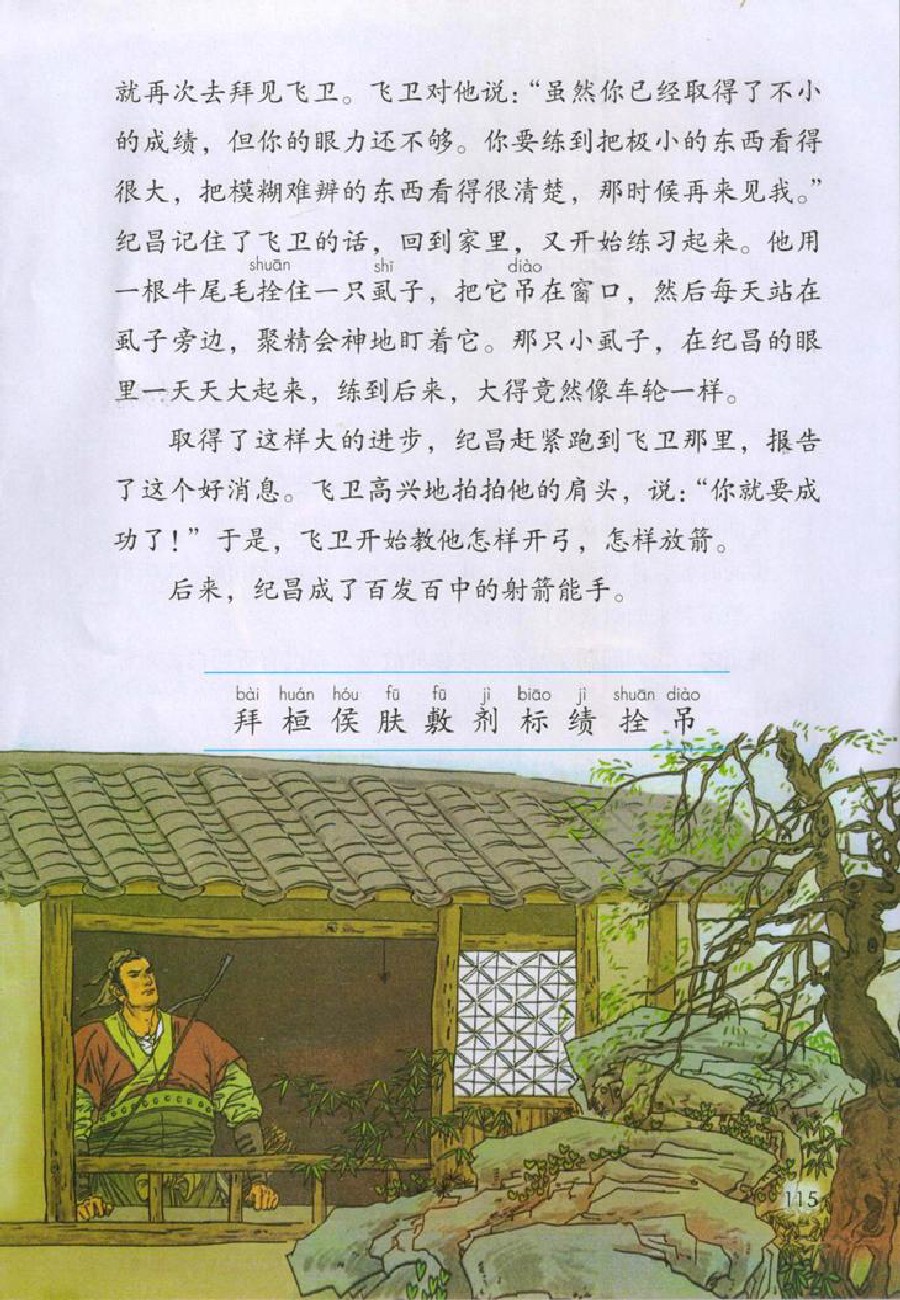 就再次去拜见飞卫。飞卫对他说：“虽然你已经取得了不小
的成绩，但你的眼力还不够。你要练到把极小的东西看得
很大，把模糊难辨的东西看得很清楚，那时候再来见我。”
纪昌记住了飞卫的话，回到家里，又开始练习起来。他用
shuān shī diào
一根牛尾毛拴住一只虱子，把它吊在窗口，然后每天站在
虱子旁边，聚精会神地盯着它。那只小虱子，在纪昌的眼
里一天天大起来，练到后来，大得竟然像车轮一样。
取得了这样大的进步，纪昌赶紧跑到飞卫那里，报告
了这个好消息。飞卫高兴地拍拍他的肩头，说：“你就要成
功了！”于是，飞卫开始教他怎样开弓，怎样放箭。
后来，纪昌成了百发百中的射箭能手。
bài huán hóu fū fū jì biāo jì shuān diào
拜 桓 侯 肤 敷 剂 标 绩 拴 吊
115